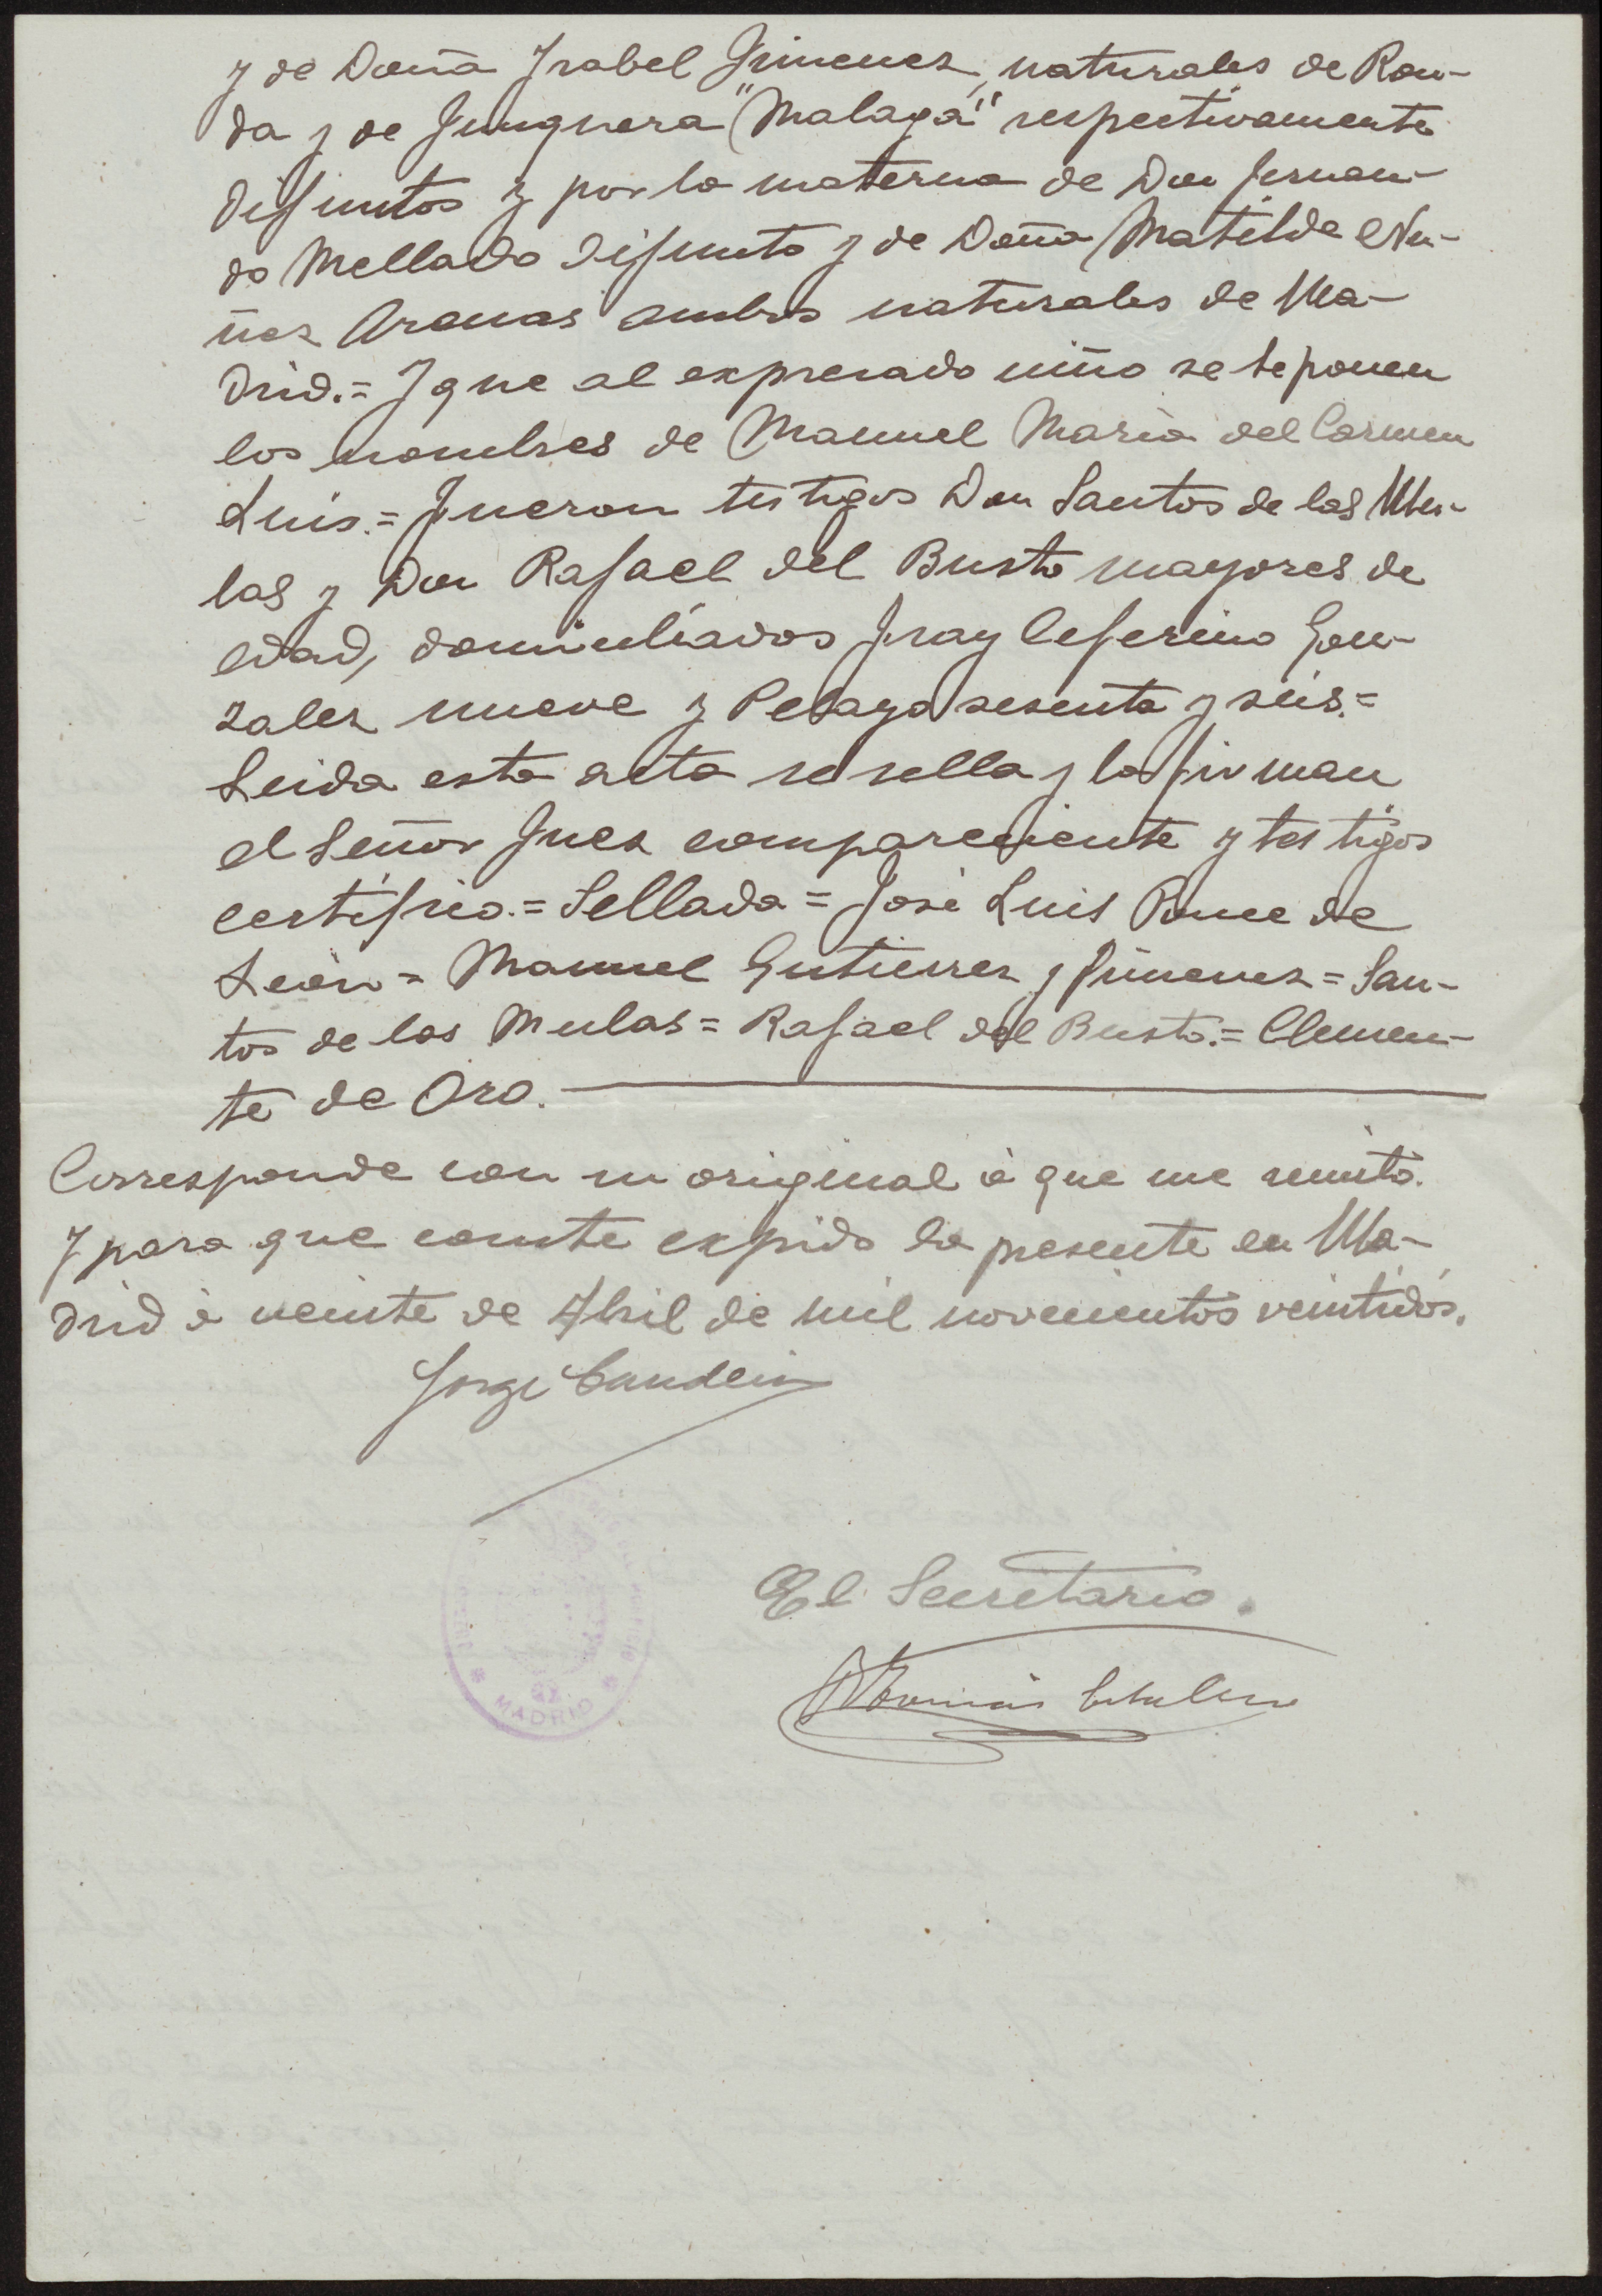 y de Doña Isabel Jimenez, naturales de Ron-
da y de Junquera "Malaga" respectivamente
difuntos y por la materna de Don Fernan-
do Mellado difunto y de Doña Matilde Nu-
ñez Arenas ambos naturales de Ma-
drid.= Y que al expresado niño se le ponen
los nombres de Manuel Maria del Carmen
Luis.= Fueron testigos Don Santos de las Mu-
las y Don Rafael del Busto mayores de
edad, domiciliados Fray Ceferino Gon-
zalez nueve y Pelayo sesenta y seis.=
Leida esta acta se sella y la firman
el Señor Juez compareciente y testigos
certifico.= Sellada = José Luis Ponce de
León = Manuel Gutierrez y Jimenez = San-
tos de las Mulas = Rafael del Busto.= Clemen-
te de Oro.
Corresponde con su original á que me remito.
Y para que conste expido la presente en Ma-
drid á veinte de Abril de mil novecientos veintidós.
Jorge
El Secretario.
MADRID